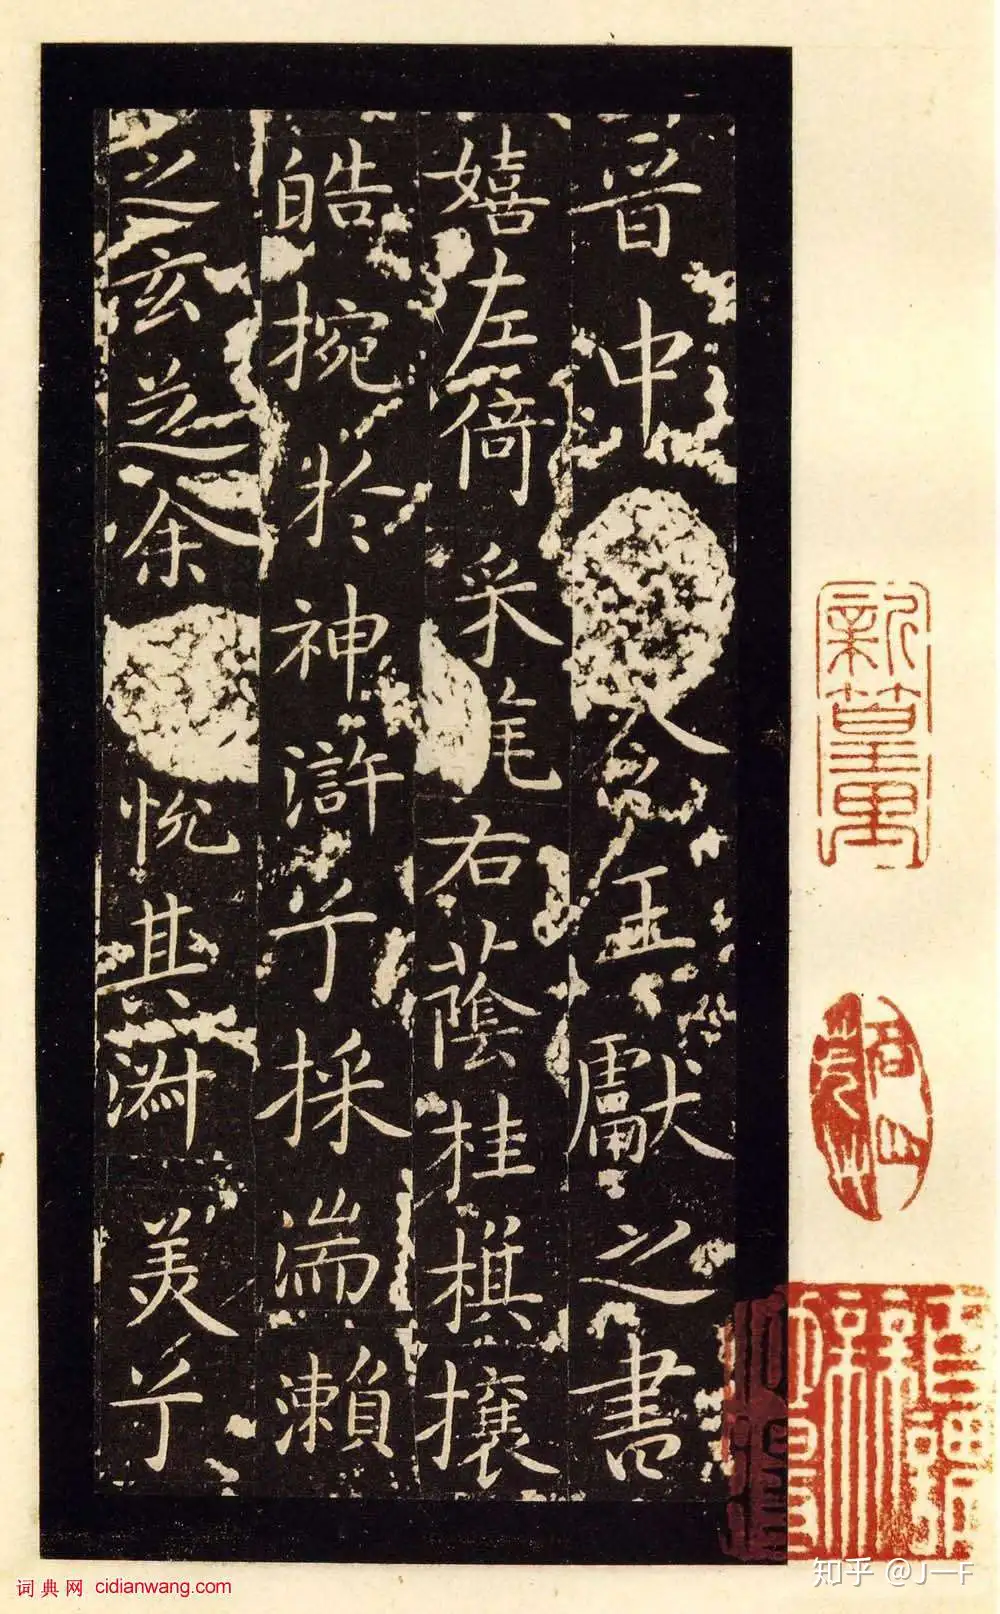 晉中令王獻之書
嬉左倚采旄右蔭桂棋攘
皓捥於神滸兮採湍瀨
之玄芝余悅其淑美兮
词典网 cidianwang.com
知乎 @J一F